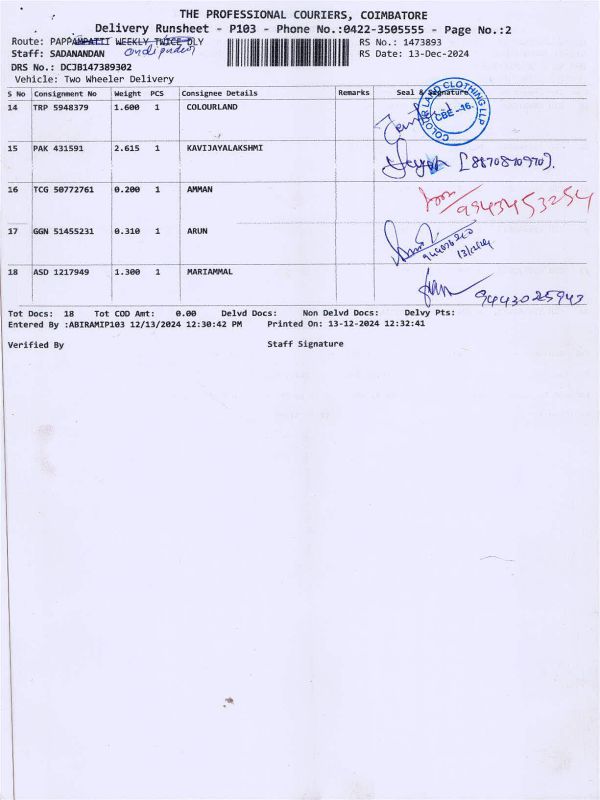 THE PROFESSIONAL COURIERS, COIMBATORE
Delivery Runsheet - P103 - Phone No.:0422-3505555 - Page No.:2
Route: PAPPAMPATTI WEEKLY TWICE DLY RS No.: 1473893
Staff: SADANANDAN RS Date: 13-Dec-2024
DRS No.: DCJB147389302
Vehicle: Two Wheeler Delivery
S No Consignment No Weight PCS Consignee Details Remarks Seal & Signature
14 TRP 5948379 1.600 1 COLOURLAND
COLOUR LAND CLOTHING LLP
CBE -16.
15 PAK 431591 2.615 1 KAVIJAYALAKSHMI
[8870810970].
16 TCG 50772761 0.200 1 AMMAN
9943453254
17 GGN 51455231 0.310 1 ARUN
18 ASD 1217949 1.300 1 MARIAMMAL
9443025943
Tot Docs: 18 Tot COD Amt: 0.00 Delvd Docs: Non Delvd Docs: Delvy Pts:
Entered By :ABIRAMIP103 12/13/2024 12:30:42 PM Printed On: 13-12-2024 12:32:41
Verified By Staff Signature